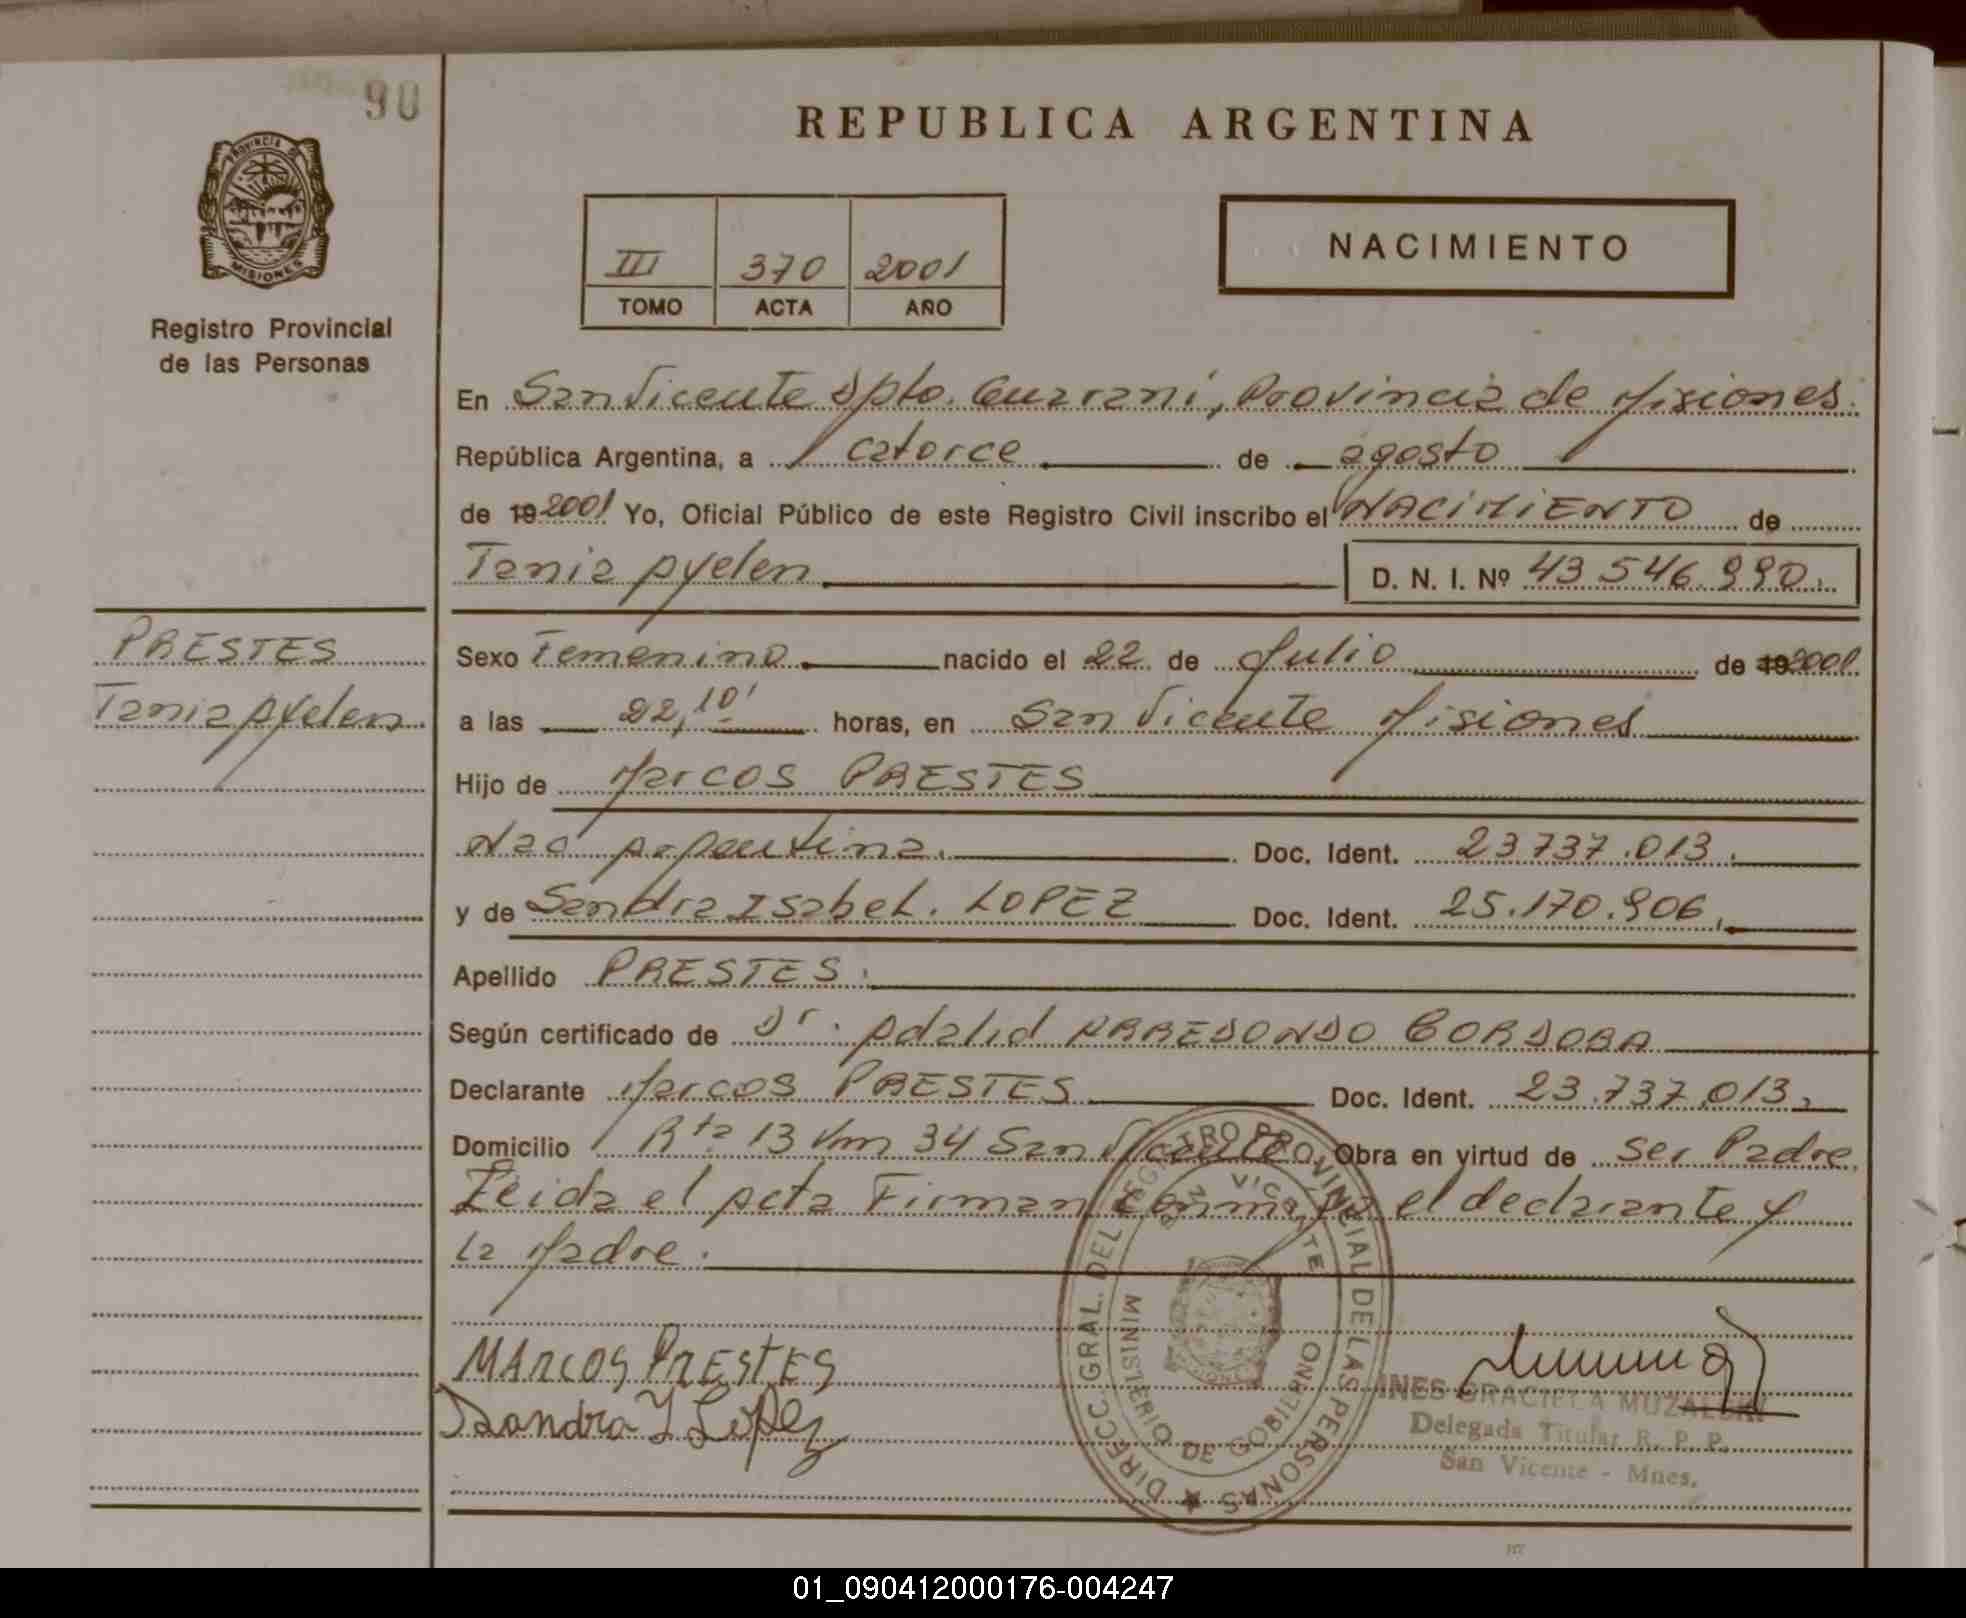 90
PROVINCIA DE
MISIONES
Registro Provincial
de las Personas
REPUBLICA ARGENTINA
III 370 2001
TOMO ACTA AÑO
NACIMIENTO
En San Vicente Dpto. Guaraní, Provincia de Misiones.
República Argentina, a catorce de agosto
de 19 2001 Yo, Oficial Público de este Registro Civil inscribo el NACIMIENTO de
Tania Ayelen D. N. I. Nº 43 546.990.
PRESTES
Tania Ayelen
Sexo Femenino nacido el 22 de Julio de 19 2001
a las 22,10' horas, en San Vicente Misiones
Hijo de Marcos PRESTES
Nac Argentina. Doc. Ident. 23 737.013.
y de Sandra Isabel. LOPEZ Doc. Ident. 25.170.906,
Apellido PRESTES.
Según certificado de Dr. Adalid ARREDONDO CORDOBA
Declarante Marcos PRESTES Doc. Ident. 23.737.013,
Domicilio Rta 13 Km 34 San Vicente Obra en virtud de ser Padre
Leida el Acta Firman conmigo el declarante y
la Madre.
MARCOS PRESTES
Sandra I López
DIRECC. GRAL. DEL REGISTRO PROVINCIAL DE LAS PERSONAS
SAN VICENTE
MINISTERIO DE GOBIERNO
INES GRACIELA MUZALSKI
Delegada Titular R. P. P.
San Vicente - Mnes.
01_090412000176-004247